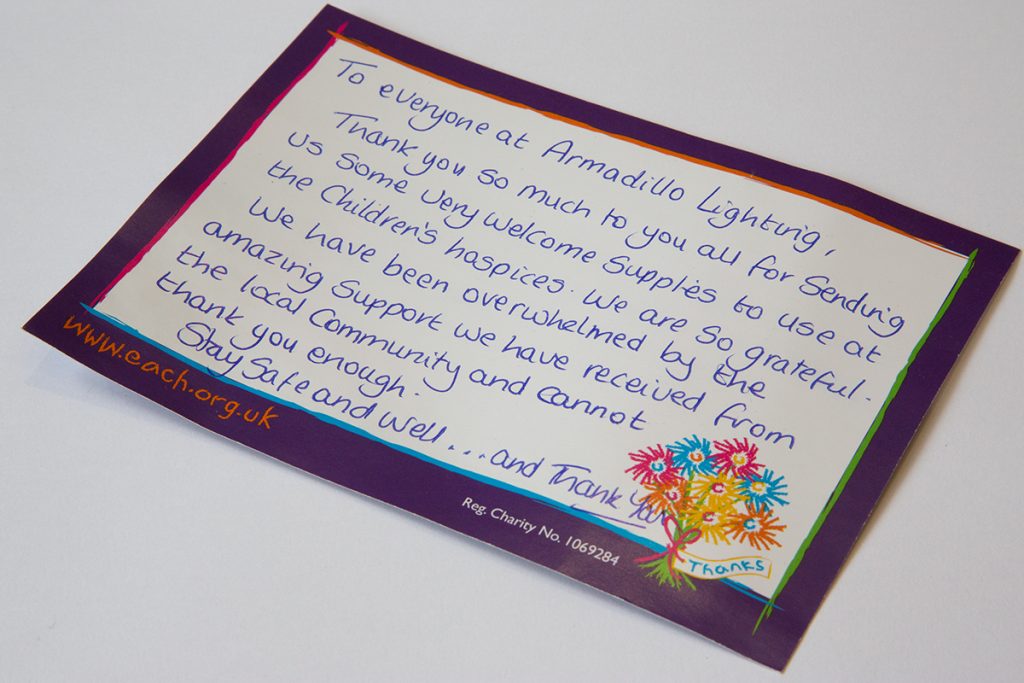 To everyone at Armadillo Lighting,
Thank you so much to you all for sending
us some very welcome supplies to use at
the Children's hospices. We are so grateful.
We have been overwhelmed by the
amazing support we have received from
the local community and cannot
thank you enough.
Stay Safe and well ... and Thank You
www.each.org.uk
Reg. Charity No. 1069284
Thanks